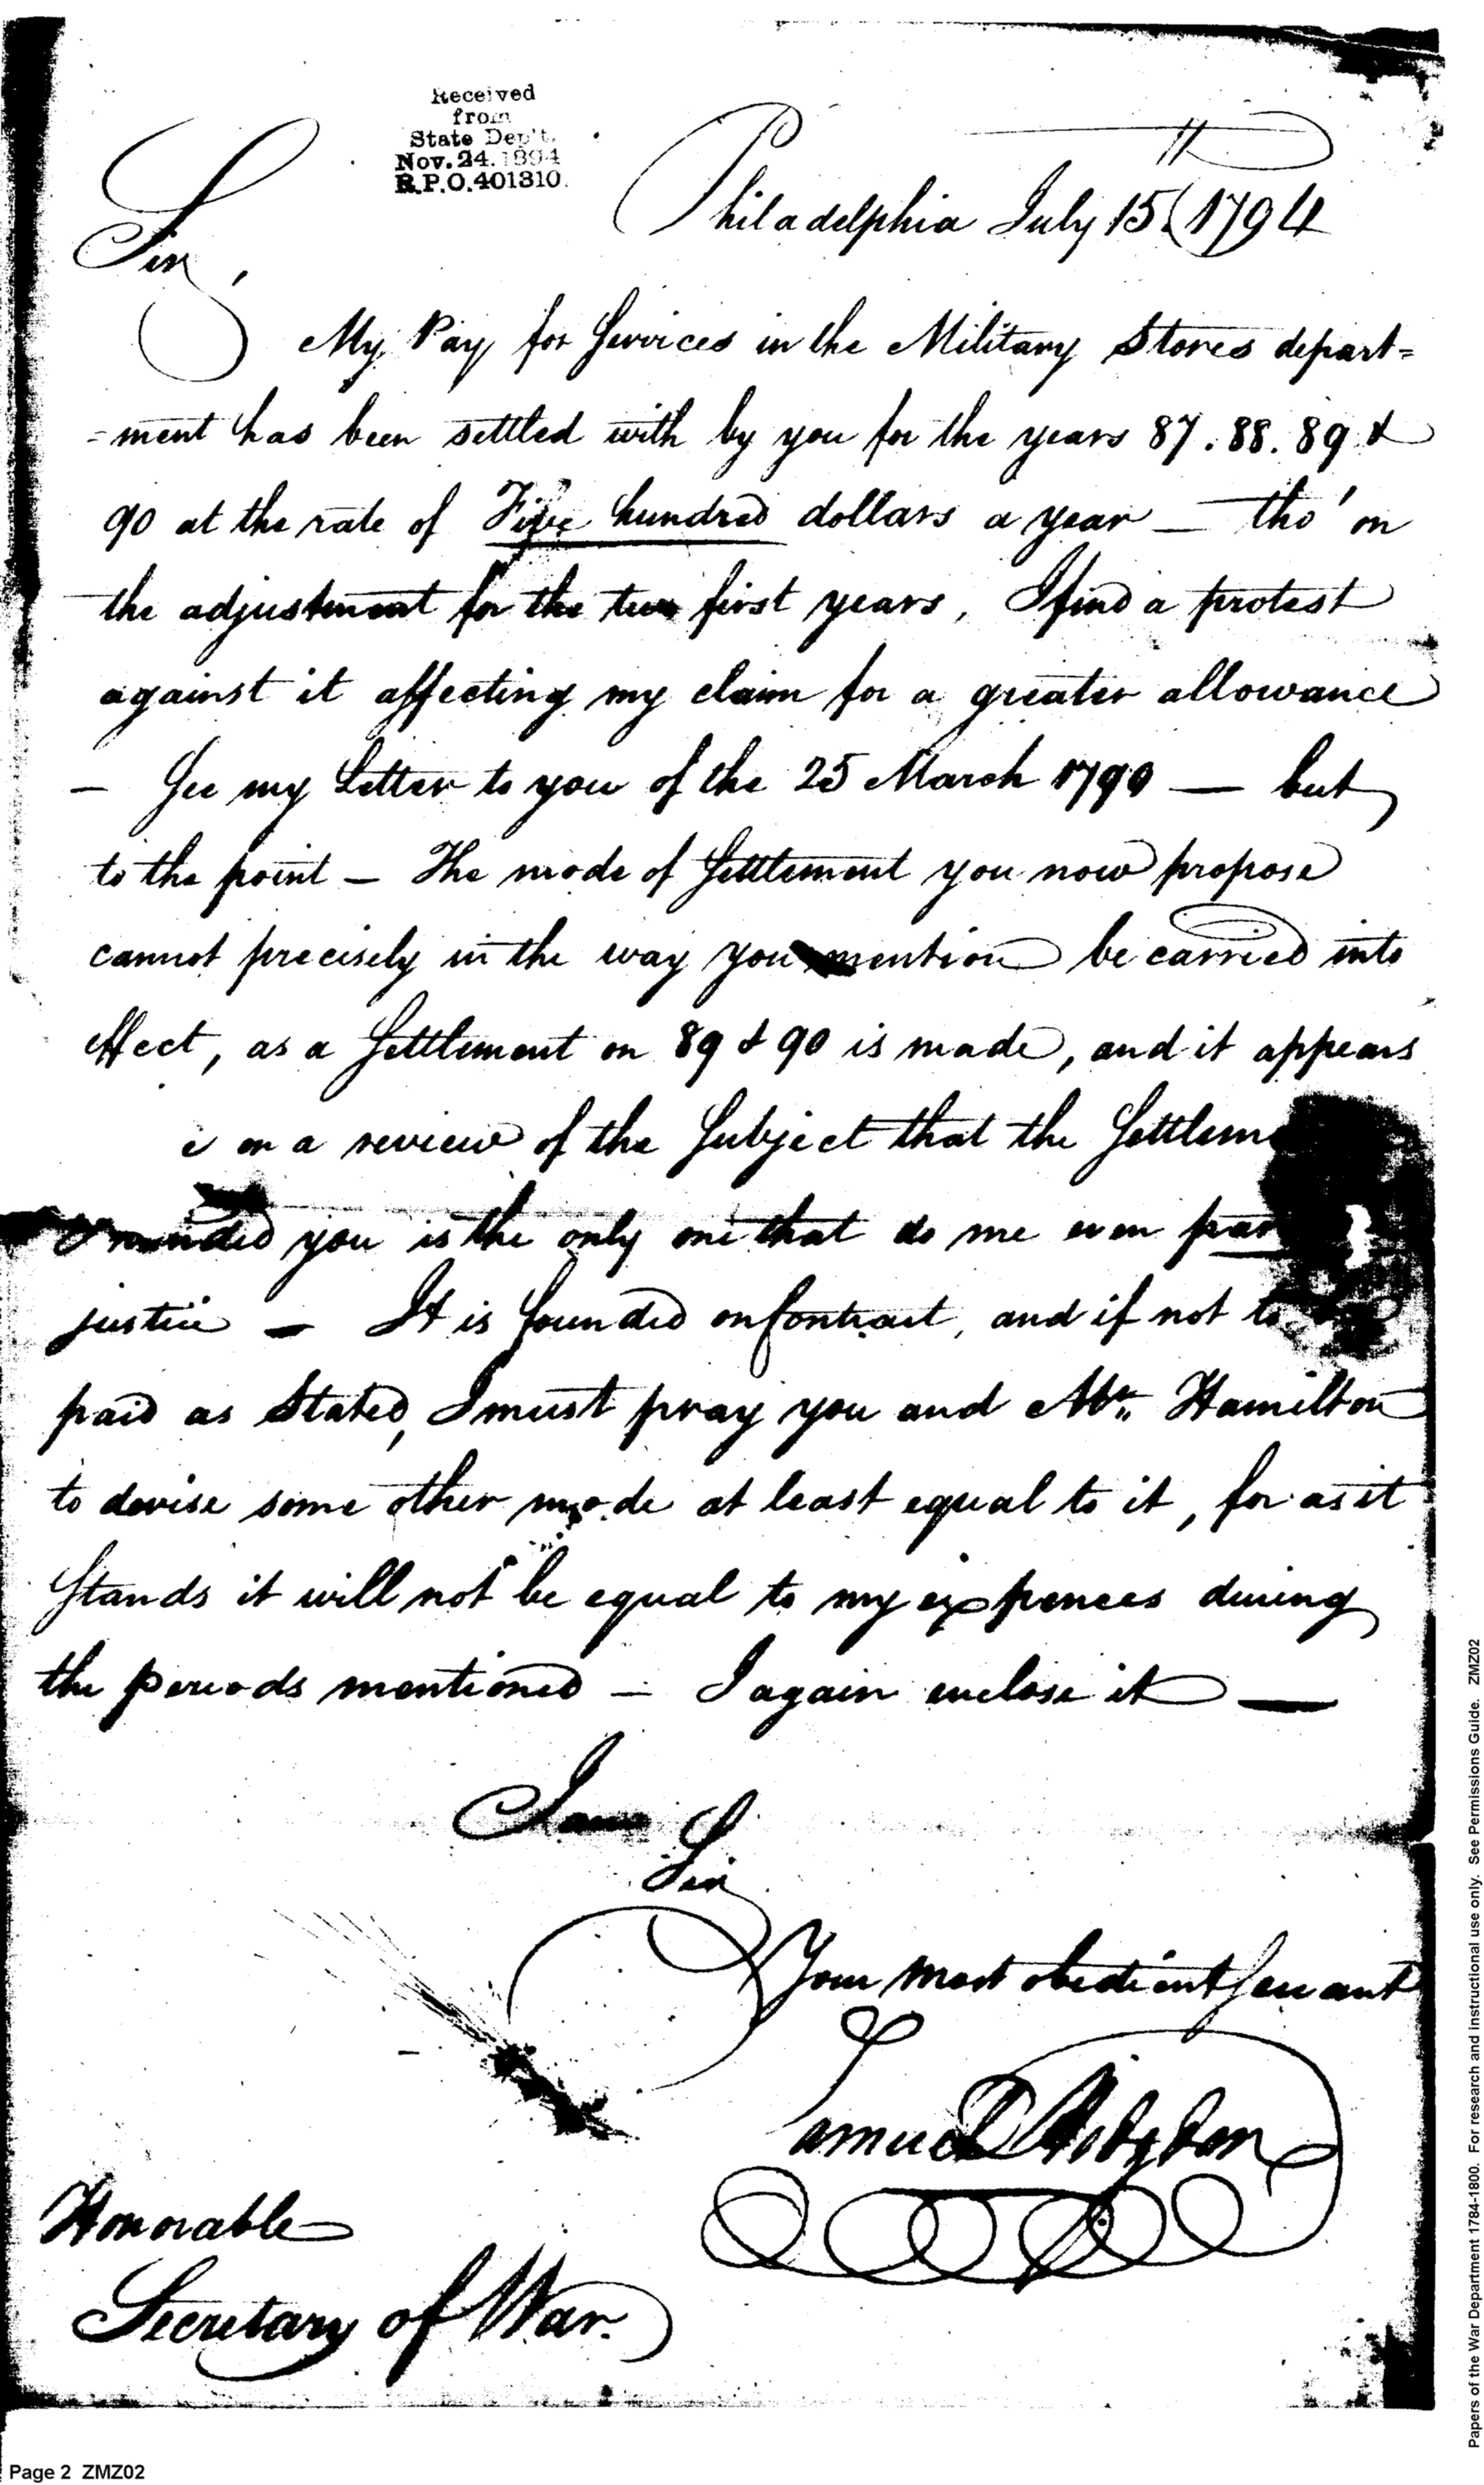 Received
from
State Dep't.
Nov. 24. 1894
R.P.O. 401310.
Philadelphia July 15. 1794
Sir,
My Pay for Services in the Military Stores depart=
=ment has been settled with by you for the years 87. 88. 89 &
90 at the rate of Five hundred dollars a year — tho' on
the adjustment for the two first years, I find a protest
against it affecting my claim for a greater allowance
— See my Letter to you of the 25 March 1790 — but
to the point — The mode of Settlement you now propose
cannot precisely in the way you mention be carried into
effect, as a Settlement on 89 & 90 is made, and it appears
e on a review of the Subject that the Settlem
you is the only one that do me even par
justice — It is founded on Contract, and if not to
paid as Stated, I must pray you and Mr. Hamilton
to devise some other mode at least equal to it, for as it
Stands it will not be equal to my expences during
the periods mentioned — I again enclose it —
I am
Sir
Your most obedient Servant
Samuel Hodgdon
Honorable
Secretary of War.
Papers of the War Department 1784-1800. For research and instructional use only. See Permissions Guide. ZMZ02
Page 2 ZMZ02